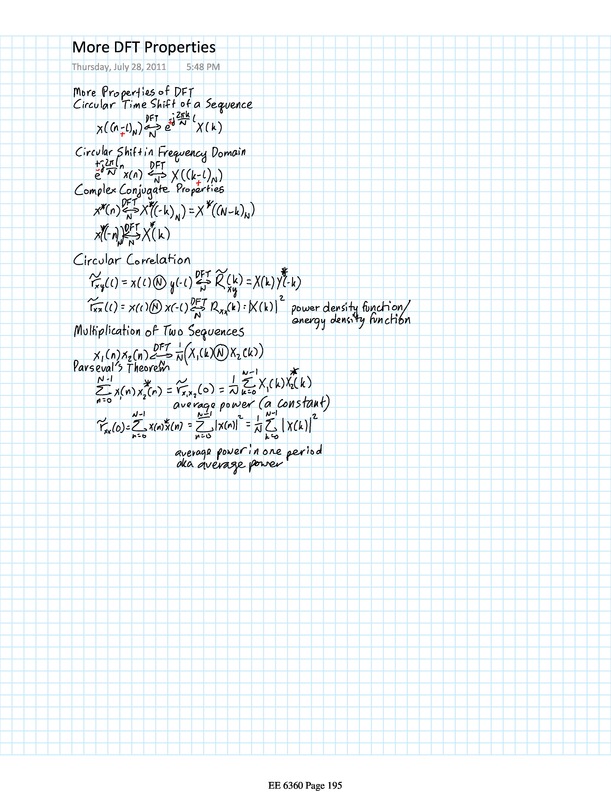 More DFT Properties
Thursday, July 28, 2011 5:48 PM
More Properties of DFT
Circular Time Shift of a Sequence
x((n-l)_N) DFT⟷N e^{-j2πk/N l} X(k)
Circular Shift in Frequency Domain
e^{+j2π/N l n} x(n) DFT⟷N X((k-l)_N)
Complex Conjugate Properties
x*(n) DFT⟷N X*((-k)_N) = X*((N-k)_N)
x*((-n)_N) DFT⟷N X*(k)
Circular Correlation
r̃_xy(l) = x(l) Ⓝ y(-l) DFT⟷N R̃_xy(k) = X(k) Y*(-k)
r̃_xx(l) = x(l) Ⓝ x(-l) DFT⟷N R_xx(k) = |X(k)|² power density function/
energy density function
Multiplication of Two Sequences
x₁(n) x₂(n) DFT⟷N 1/N (X₁(k) Ⓝ X₂(k))
Parseval's Theorem
∑_{n=0}^{N-1} x(n) x₂*(n) = r̃_{x₁x₂}(0) = 1/N ∑_{k=0}^{N-1} X₁(k) X₂*(k)
average power (a constant)
r̃_xx(0) = ∑_{n=0}^{N-1} x(n) x*(n) = ∑_{n=0}^{N-1} |x(n)|² = 1/N ∑_{k=0}^{N-1} |X(k)|²
average power in one period
aka average power
EE 6360 Page 195